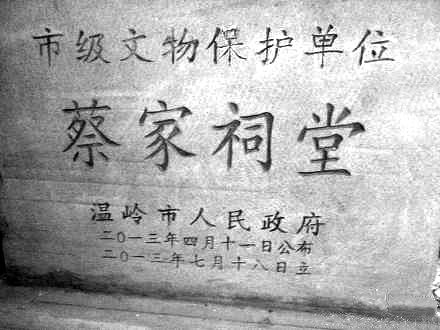 市级文物保护单位
蔡家祠堂
温岭市人民政府
二〇一三年四月十一日公布
二〇一三年七月十八日立